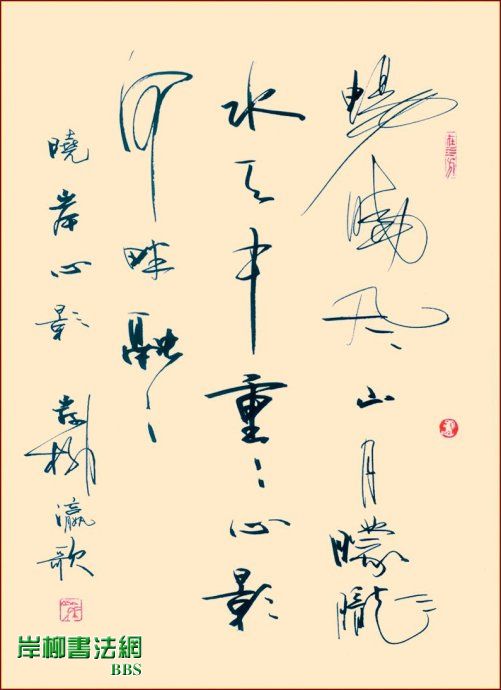 山月朦朧
水天中重〻心影
河畔融〻
曉岸心影 岸柳瀛歌
岸柳書法網
BBS